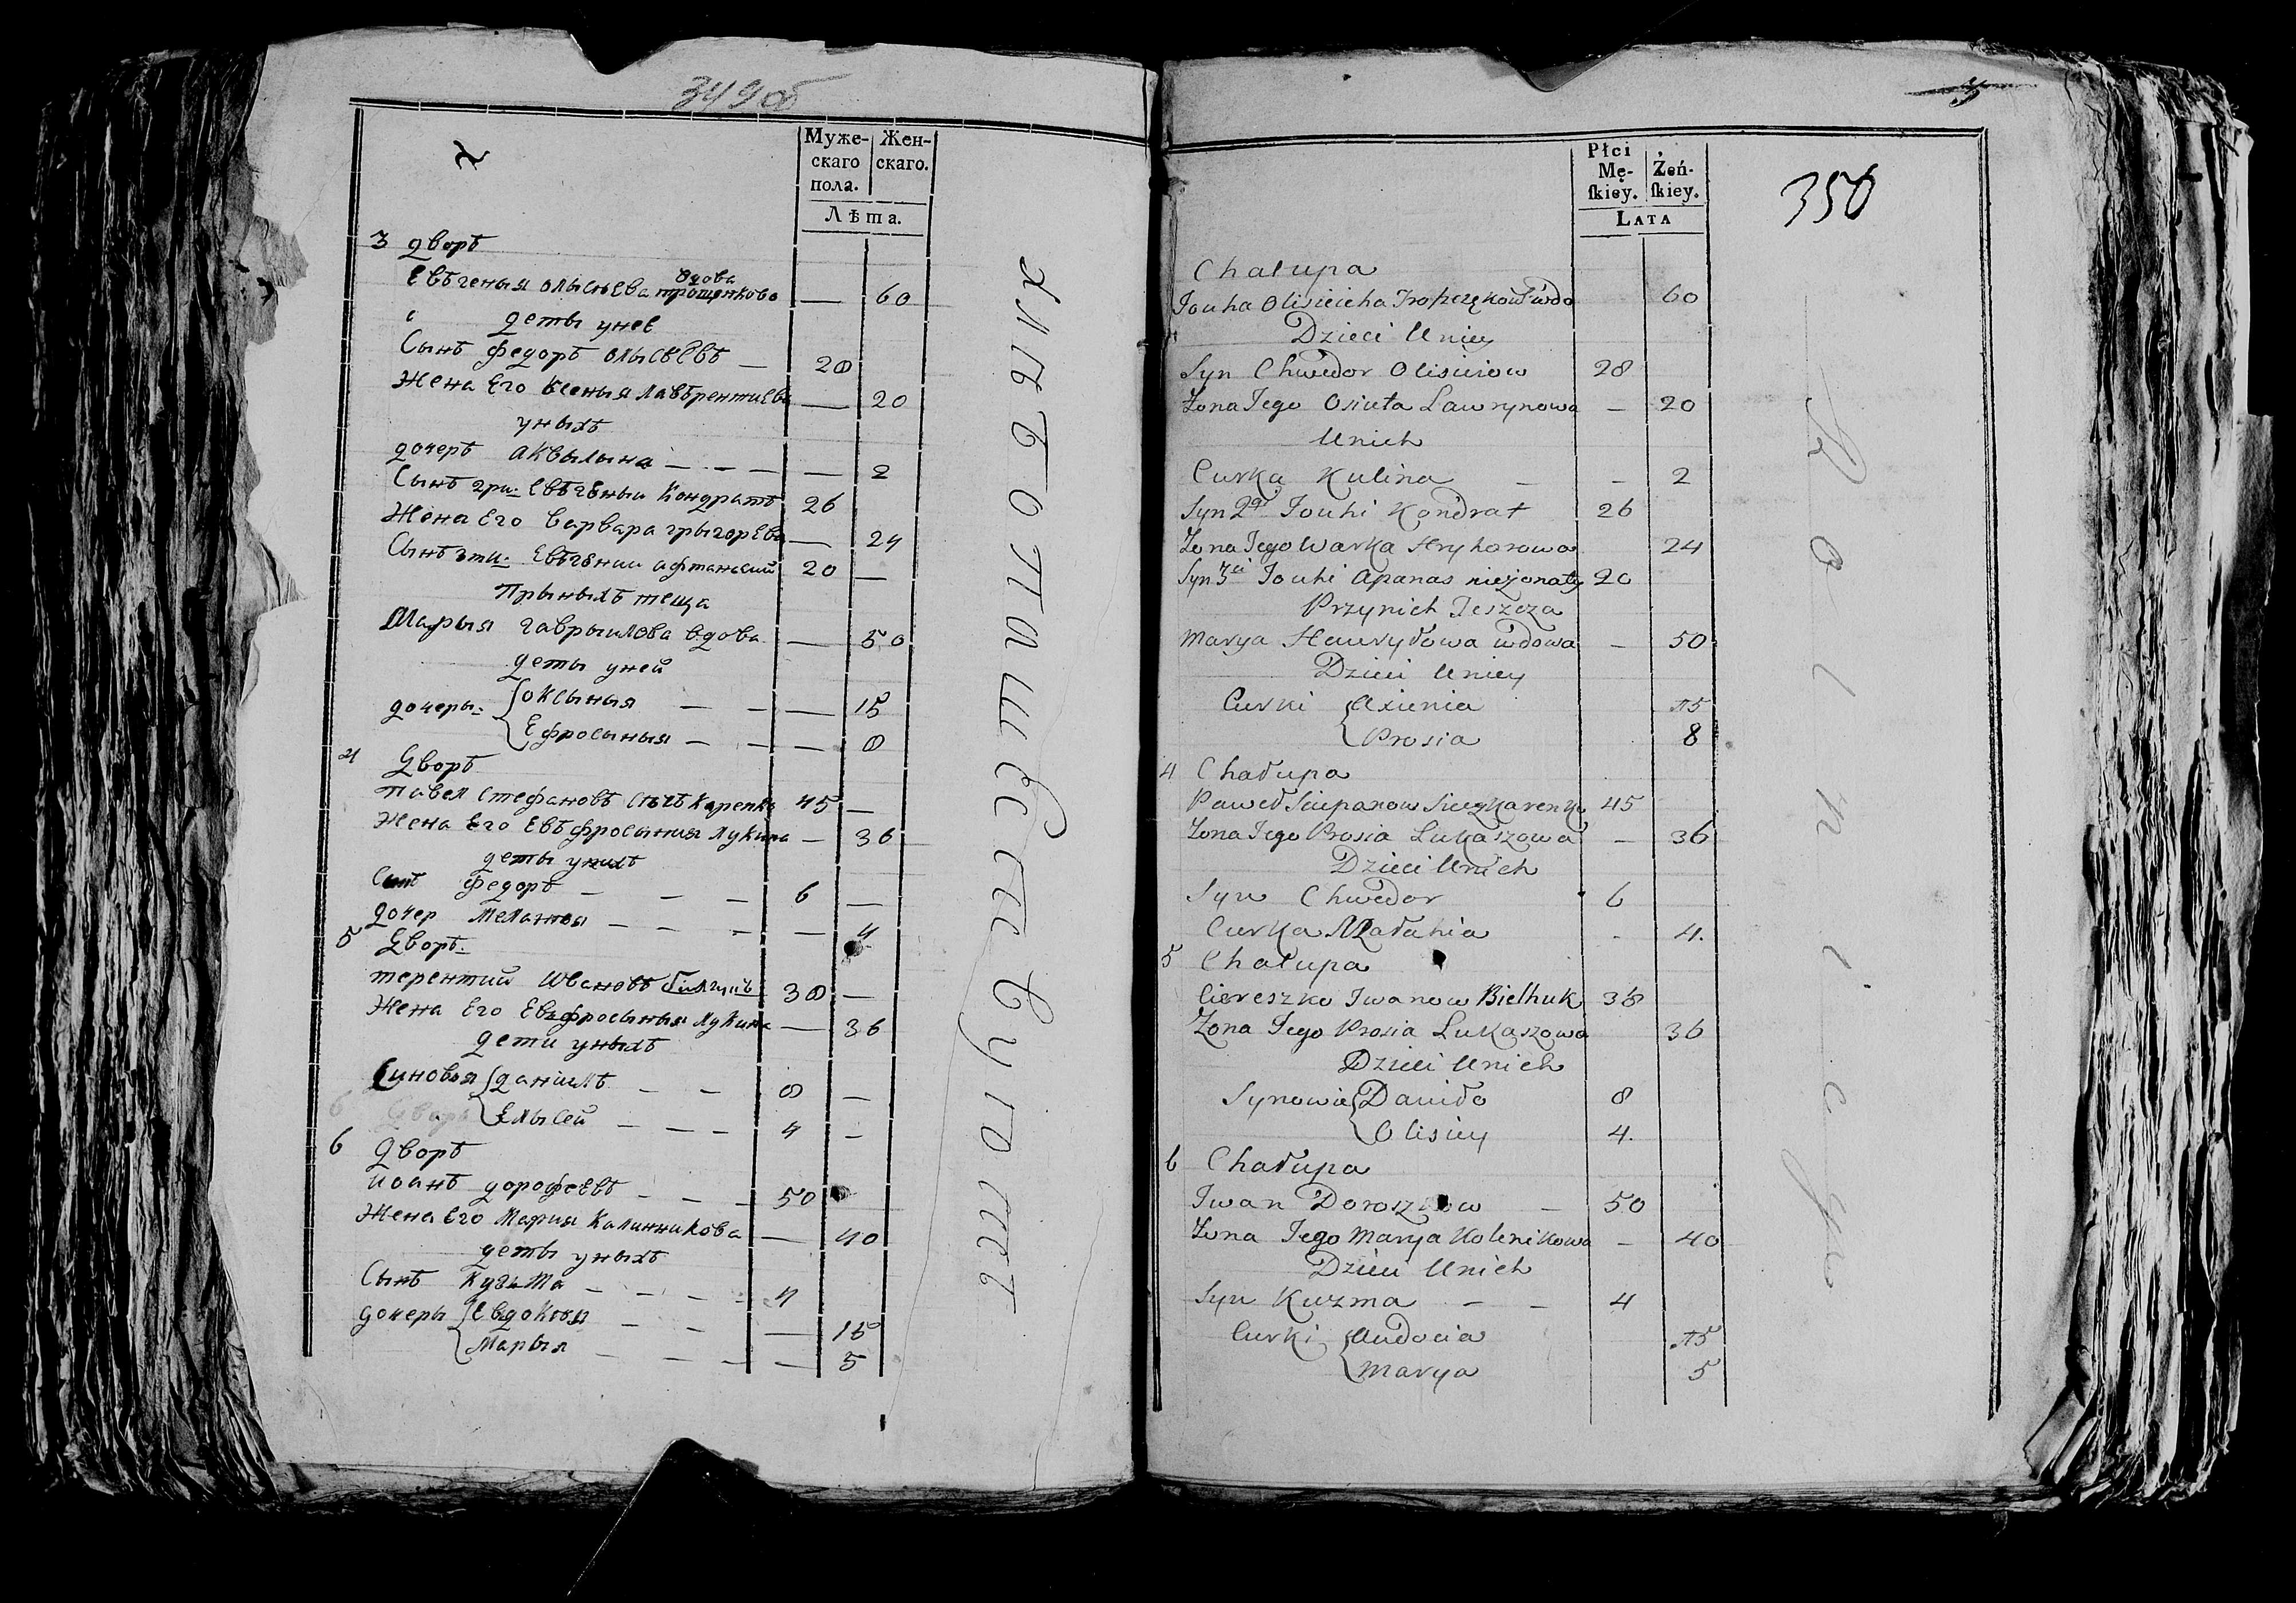 349об
Муже-
скаго
пола.
Жен-
скаго.
Лѣта.
3 дворъ
Евъгеныя олысѣева вдова трощенкова — 60
деты унее
Сынъ федоръ олысѣевъ — 28
Жена Его Ксеныя лавърентиева — 20
уныхъ
дочеръ аквылына — — — — 2
Сынъ Евъгѣныи Кондратъ 26
Жена Его варвара грыгорѣва — 24
Сынъ 3ти: Евъгѣнии афтанасий 20 —
Прыныхъ теща
Марыя гаврыилова вдова — 50
деты уней
дочеры: оксыныя — — — 15
Ефросыныя — — — 8
4 Дворъ
павел стефановъ 45 —
Жена Его Евъфросыния лукина — 36
деты унихъ
Сынъ федоръ — — — 6 —
дочер Меланыя — — — — 4
5 Дворъ
терентий Ивановъ 38 —
Жена Его Евъфросыныя лукина — 36
дети уныхъ
Синовья даниилъ — — 8 —
Елысей — — — 4 —
6 Дворъ
иоанъ дорофеевъ — — — 50
Жена Его Мария Калинникова — 40
деты уныхъ
Сынъ Кузьма — — — — 4
дочеры Евдокыя — — — 15
Марыя — — — — — 5
Płci
Mę-
skiey.
Żeń-
skiey.
LATA
350
Chałupa
Jouha Olisieicha wdo 60
Dzieci Uniey
Syn Chwedor Olisieiow 28
Zona Jego Osiuta Lawrynowa — 20
Unich
Curka Kulina — — 2
Syn 2gi Jouhi Kondrat 26
Zona Jego Warka Hryhorowa 24
Syn 3ci Jouhi Apanas niezonaty 20
Przynich Teszcza
Marya Hawryłowa wdowa — 50
Dzieci Uniey
Curki Axienia 15
Prosia 8
4 Chałupa
Paweł Sciepanow 45
Zona Jego Prosia Lukaszowa — 36
Dzieci Unich
Syn Chwedor 6
Curka Małania - 4.
5 Chałupa
Ciereszko Iwanow Bielhuk 38
Zona Jego Prosia Lukaszowa 36
Dzieci Unich
Synowie Daniło 8
Olisiey 4.
6 Chałupa
Iwan Doroszkow — 50
Zona Jego Marya Kolenikowa — 40
Dzieci Unich
Syn Kuzma — — 4
Curki Audocia 15
Marya 5